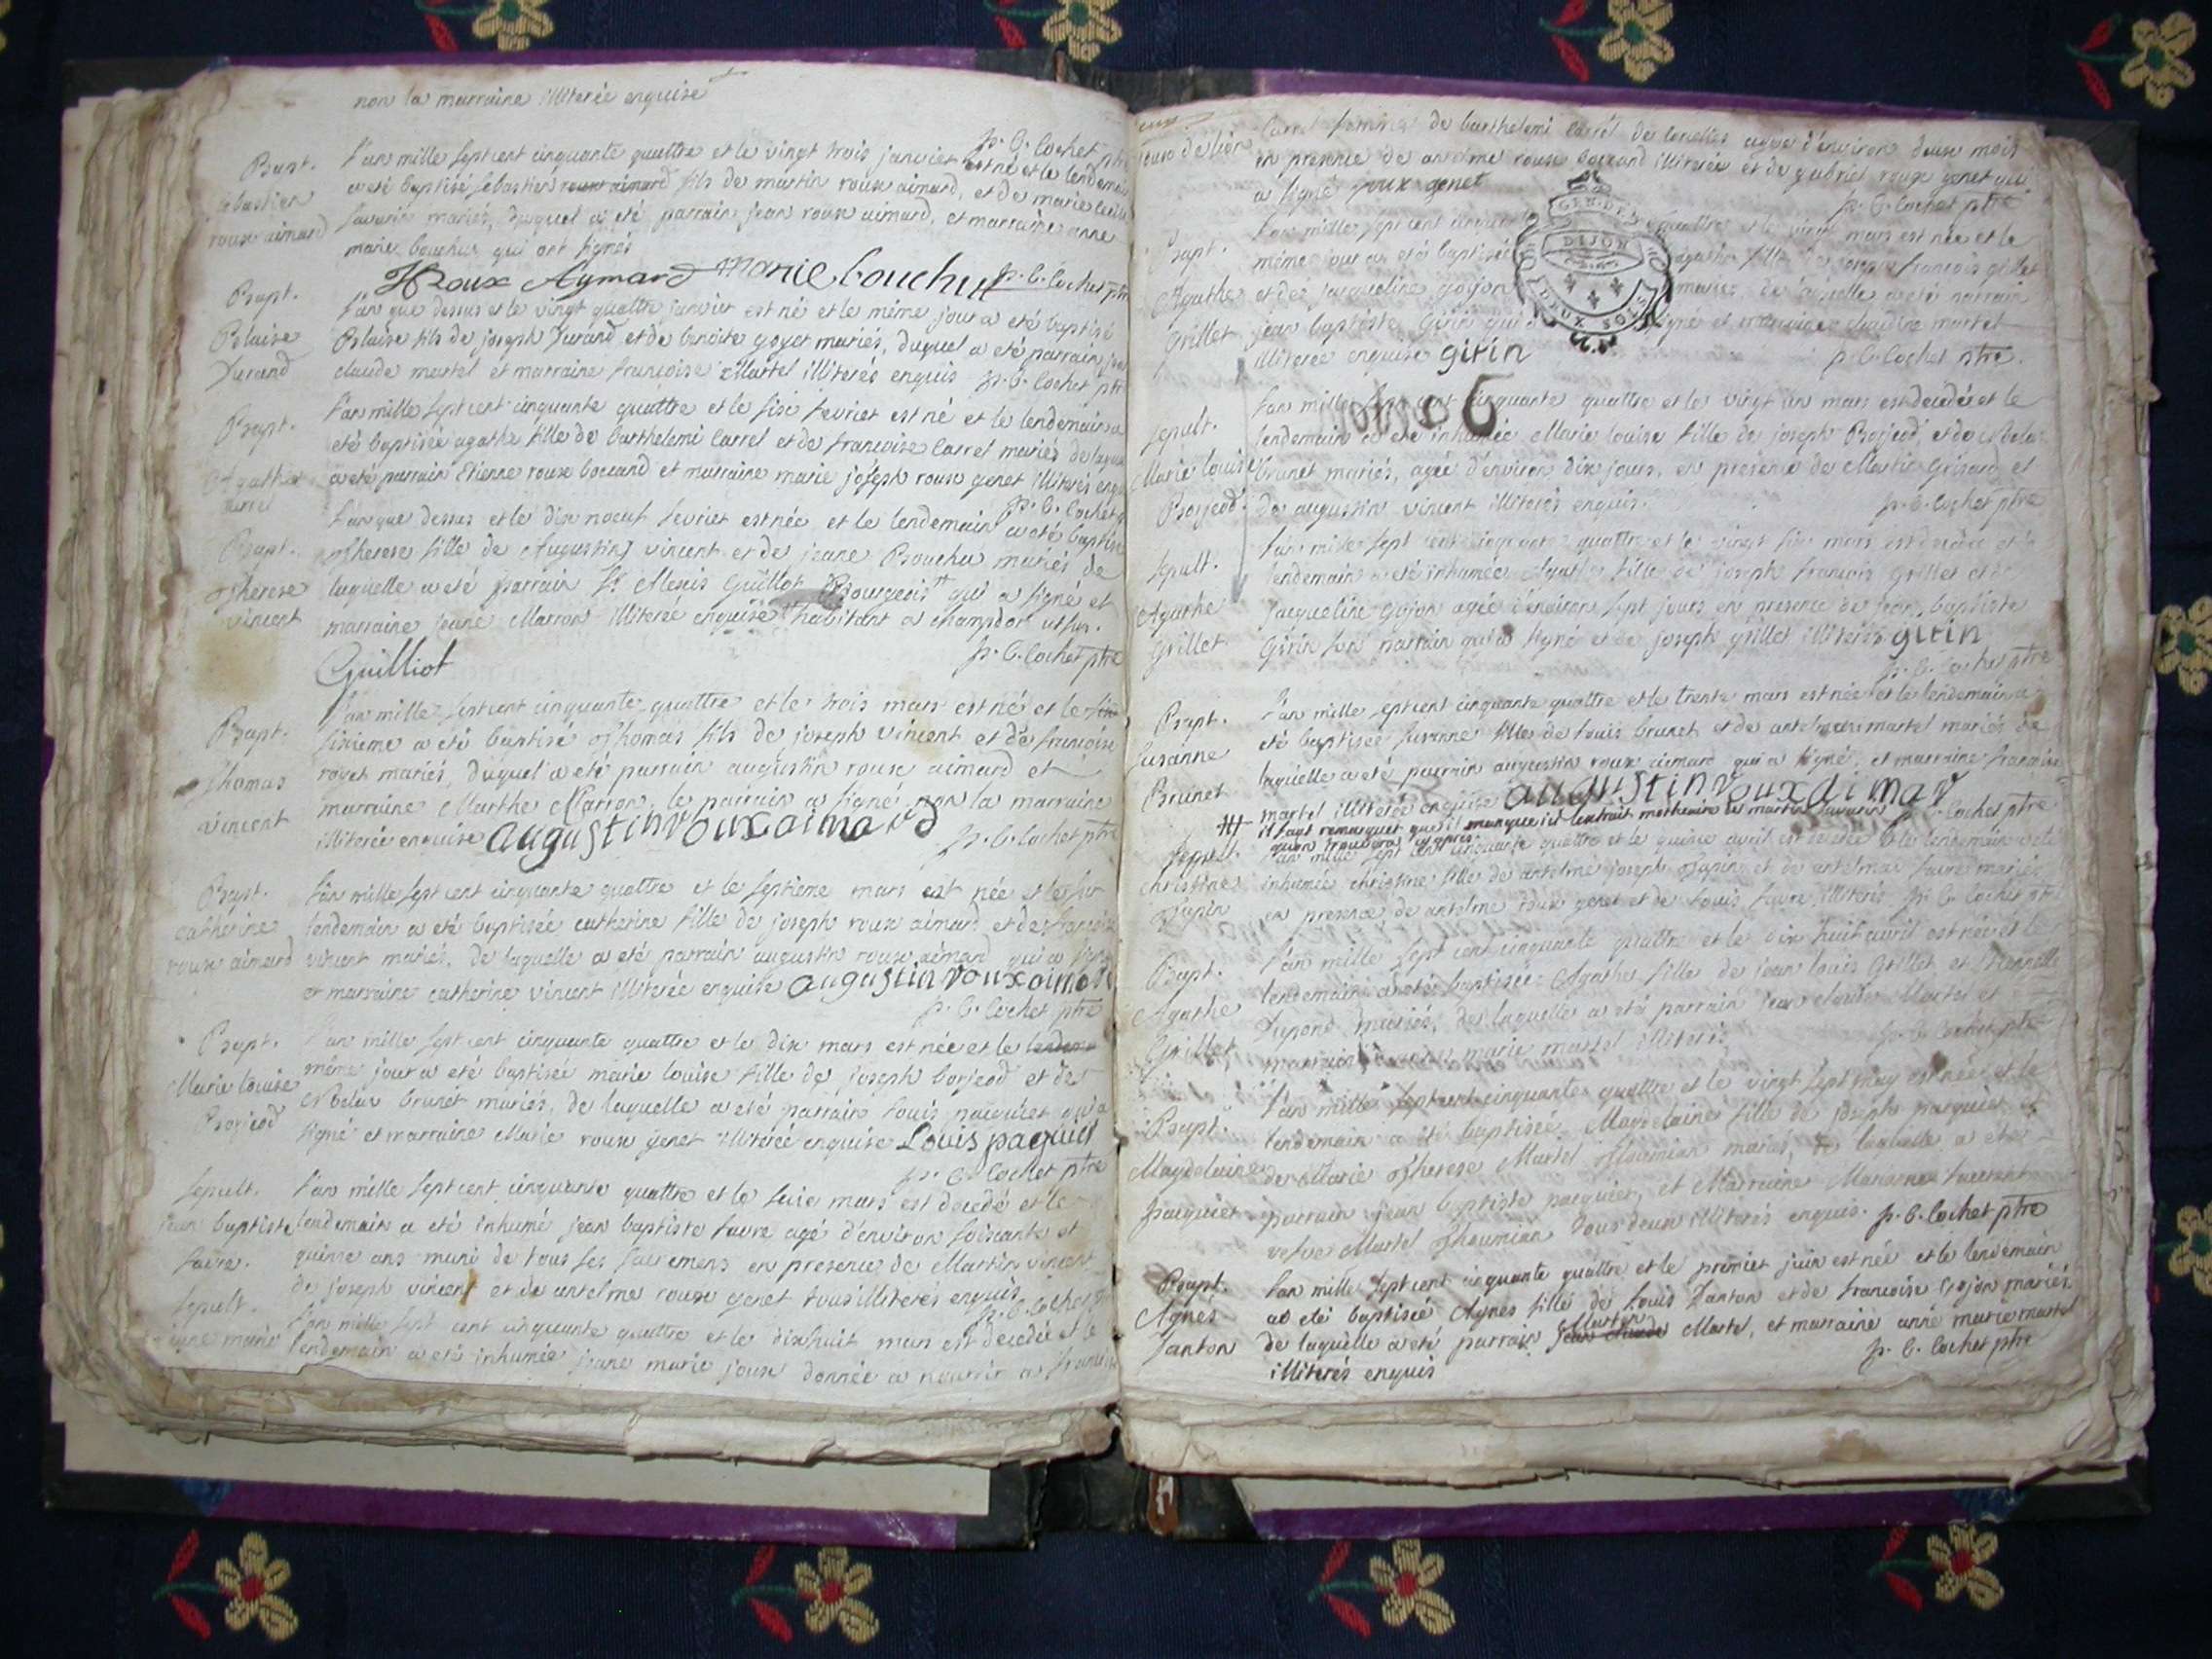 non la marraine illiterée enquise
p. C. Cochet ptre
Bapt.
Sebastien
roux aimard
l'an mille sept cent cinquante quattre et le vingt trois janvier est né et le lendemain
a eté baptisé Sebastien roux aimard fils de martin roux aimard, et de marie
mariés, duquel a eté parrain jean roux aimard, et marraine anne
marie bouchu qui ont signés
JRoux Aymard Marie bouchu p. C. Cochet ptre
Bapt.
Blaise
Durand
l'an que dessus et le vingt quattre janvier est né et le même jour a eté baptisé
Blaise fils de joseph Durand et de benoite goyet mariés, duquel a eté parrain
claude martel et marraine francoise Martel illiterés enquis p. C. Cochet ptre
Bapt.
Agathe
Carrel
l'an mille sept cent cinquante quattre et le six fevrier est né et le lendemain a
eté baptisée agathe fille de barthelemi Carrel et de francoise Carrel mariés de laquelle
a eté parrain Etienne roux boccand et marraine marie joseph roux genet illiterés enquis
p. C. Cochet
Bapt.
Therese
vincent
l'an que dessus et le dix neuf fevrier est née et le lendemain a eté baptisée
Therese fille de Augustin vincent et de jeane Bouchu mariés de
laquelle a eté parrain Sr Alexis Guillot Bourgeois qui a signé et
marraine jeane Marron illiterée enquise habitant a champdor
Guilliot
p. C. Cochet ptre
Bapt.
Thomas
vincent
l'an mille sept cent cinquante quattre et le trois mars est né et le
sixieme a eté baptisé Thomas fils de joseph vincent et de francoise
royet mariés, duquel a eté parrain augustin roux aimard et
marraine Marthe Marron, le parrain a signé non la marraine
illiterée enquise augustin roux aimard
p. C. Cochet ptre
Bapt.
catherine
roux aimard
l'an mille sept cent cinquante quattre et le septieme mars est née et le
lendemain a eté baptisée catherine fille de joseph roux aimard et de francoise
vincent mariés, de laquelle a eté parrain augustin roux aimard qui a signé
et marraine catherine vincent illiterée enquise augustin roux aimard
p. C. Cochet ptre
Bapt.
Marie Louise
Borjeod
l'an mille sept cent cinquante quattre et le dix mars est née et le
même jour a eté baptisée marie louise fille de joseph borjeod et de
brunet mariés, de laquelle a eté parrain louis paquiet qui a
signé et marraine Marie roux genet illiterée enquise Louis paquiet
p. C. Cochet ptre
Sepult.
jean baptiste
favre.
l'an mille sept cent cinquante quattre et le seize mars est decedé et le
lendemain a eté inhumé jean baptiste favre agé d'environ soisante et
quinze ans muni de tous ses sacremens en presence de Martin vincent
de joseph vincent et de antelme roux genet tous illiterés enquis
p. C. Cochet
Sepult.
jeane marie
l'an mille sept cent cinquante quattre et le dixhuit mars est decedée et le
lendemain a eté inhumée jeane marie joux donnée a nourrir a
Carrel femme de barthelemi Carrel de agée d'environ deux mois
en presence de antelme roux boccand illiterée et de gabriel roux genet qui
a signé roux genet
p. C. Cochet ptre
GEN. DE
DIJON
DEUX SOLS
Bapt.
Agathe
Grillet
l'an mille sept cent cinquante quattre et le vingt mars est née et le
même jour a eté baptisée agathe fille de joseph francois grillet
et de jacqueline gojon mariés, de laquelle a eté parrain
jean baptiste Girin qui a signé et marraine claudine martel
illiterée enquise girin
p. C. Cochet ptre.
6
Sepult.
Marie Louise
Borjeod.
l'an mille sept cent cinquante quattre et le vingt un mars est decedée et le
lendemain a eté inhumée Marie louise fille de joseph Borjeod, et de
brunet mariés, agée d'environ dix jours, en presence de Martin Grisard et
de augustin vincent illiterés enquis.
p. C. Cochet ptre
Sepult.
Agathe
Grillet.
l'an mille sept cent cinquante quattre et le vingt six mars est decedée et le
lendemain a eté inhumée Agathe fille de joseph francois Grillet et de
jacqueline Gojon agée d'environ sept jours en presence de jean baptiste
Girin son parrain qui a signé et de joseph grillet illiterés girin
p. C. Cochet ptre
Bapt.
Susanne
Brunet
l'an mille sept cent cinquante quattre et le trente mars est née et le lendemain a
eté baptisée Susanne fille de louis brunet et de martel mariés de
laquelle a eté parrain augustin roux aimard qui a signé, et marraine francoise
martel illiterée enquise augustin roux aimar
p. C. Cochet ptre
il faut remarquer que il manque ici l'extrait mortuaire de martin
qu'on trouvera cy apres
Sepult.
christine
Tapin
l'an mille sept cent cinquante quattre et le quinze avril est decedée et le lendemain a eté
inhumée christine fille de antelme joseph Tapin et de favre mariés
en presence de antelme roux genet et de louis favre illiterés p. C. Cochet ptre
Bapt.
Agathe
Grillet
l'an mille sept cent cinquante quattre et le dix huit avril est née et le
lendemain a eté baptisée Agathe fille de jean louis Grillet et
mariés, de laquelle a eté parrain jean claude Martel et
marraine marie martel illiterés
p. C. Cochet ptre
Bapt.
Magdelaine
paquiet
l'an mille sept cent cinquante quattre et le vingt sept may est née et le
lendemain a eté baptisée Magdelaine fille de joseph paquiet et
de Marie Therese Martel Thoumian mariés, de laquelle a eté
parrain jean baptiste paquiet, et Marraine Marianne
vefve Martel Thoumian tous deux illiterés enquis. p. C. Cochet ptre
Bapt.
Agnés
Tanton
l'an mille sept cent cinquante quattre et le premier juin est née et le lendemain
a eté baptisée Agnes fille de louis Tanton et de francoise Gojon mariés
de laquelle a eté parrain jean claude Martin Martel, et marraine anne marie martel
illiterés enquis
p. C. Cochet ptre